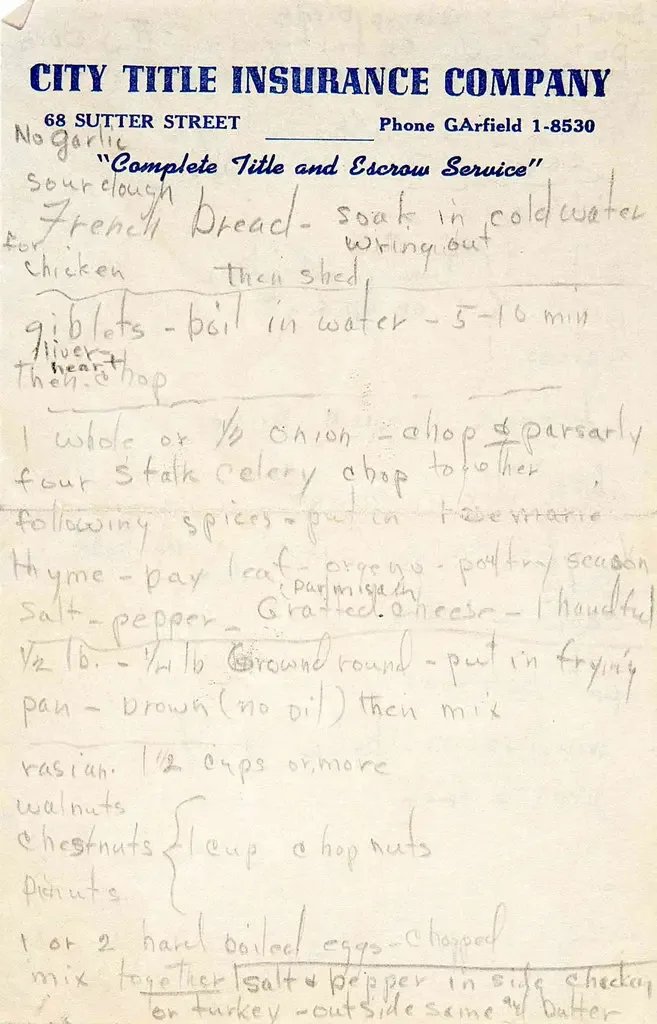 CITY TITLE INSURANCE COMPANY
68 SUTTER STREET Phone GArfield 1-8530
No garlic
"Complete Title and Escrow Service"
sourdough
French bread - soak in cold water
for wring out
chicken then shed
giblets - boil in water - 5-10 min
liver
heart
then chop
1 whole or 1/2 onion - chop & parsarly
four stalk celery chop together
following spices - put in rosemarie
thyme - bay leaf - oregeno - poltry season
parmisain
salt - pepper - Gratted cheese - 1 handful
1/2 lb. - 1/4 lb Ground round - put in frying
pan - brown (no oil) then mix
rasian. 1 1/2 cups or more
walnuts
chestnuts 1 cup chop nuts
pinuts
1 or 2 hard boiled eggs - chopped
mix together salt & pepper in side chicken
or turkey - outside same butter